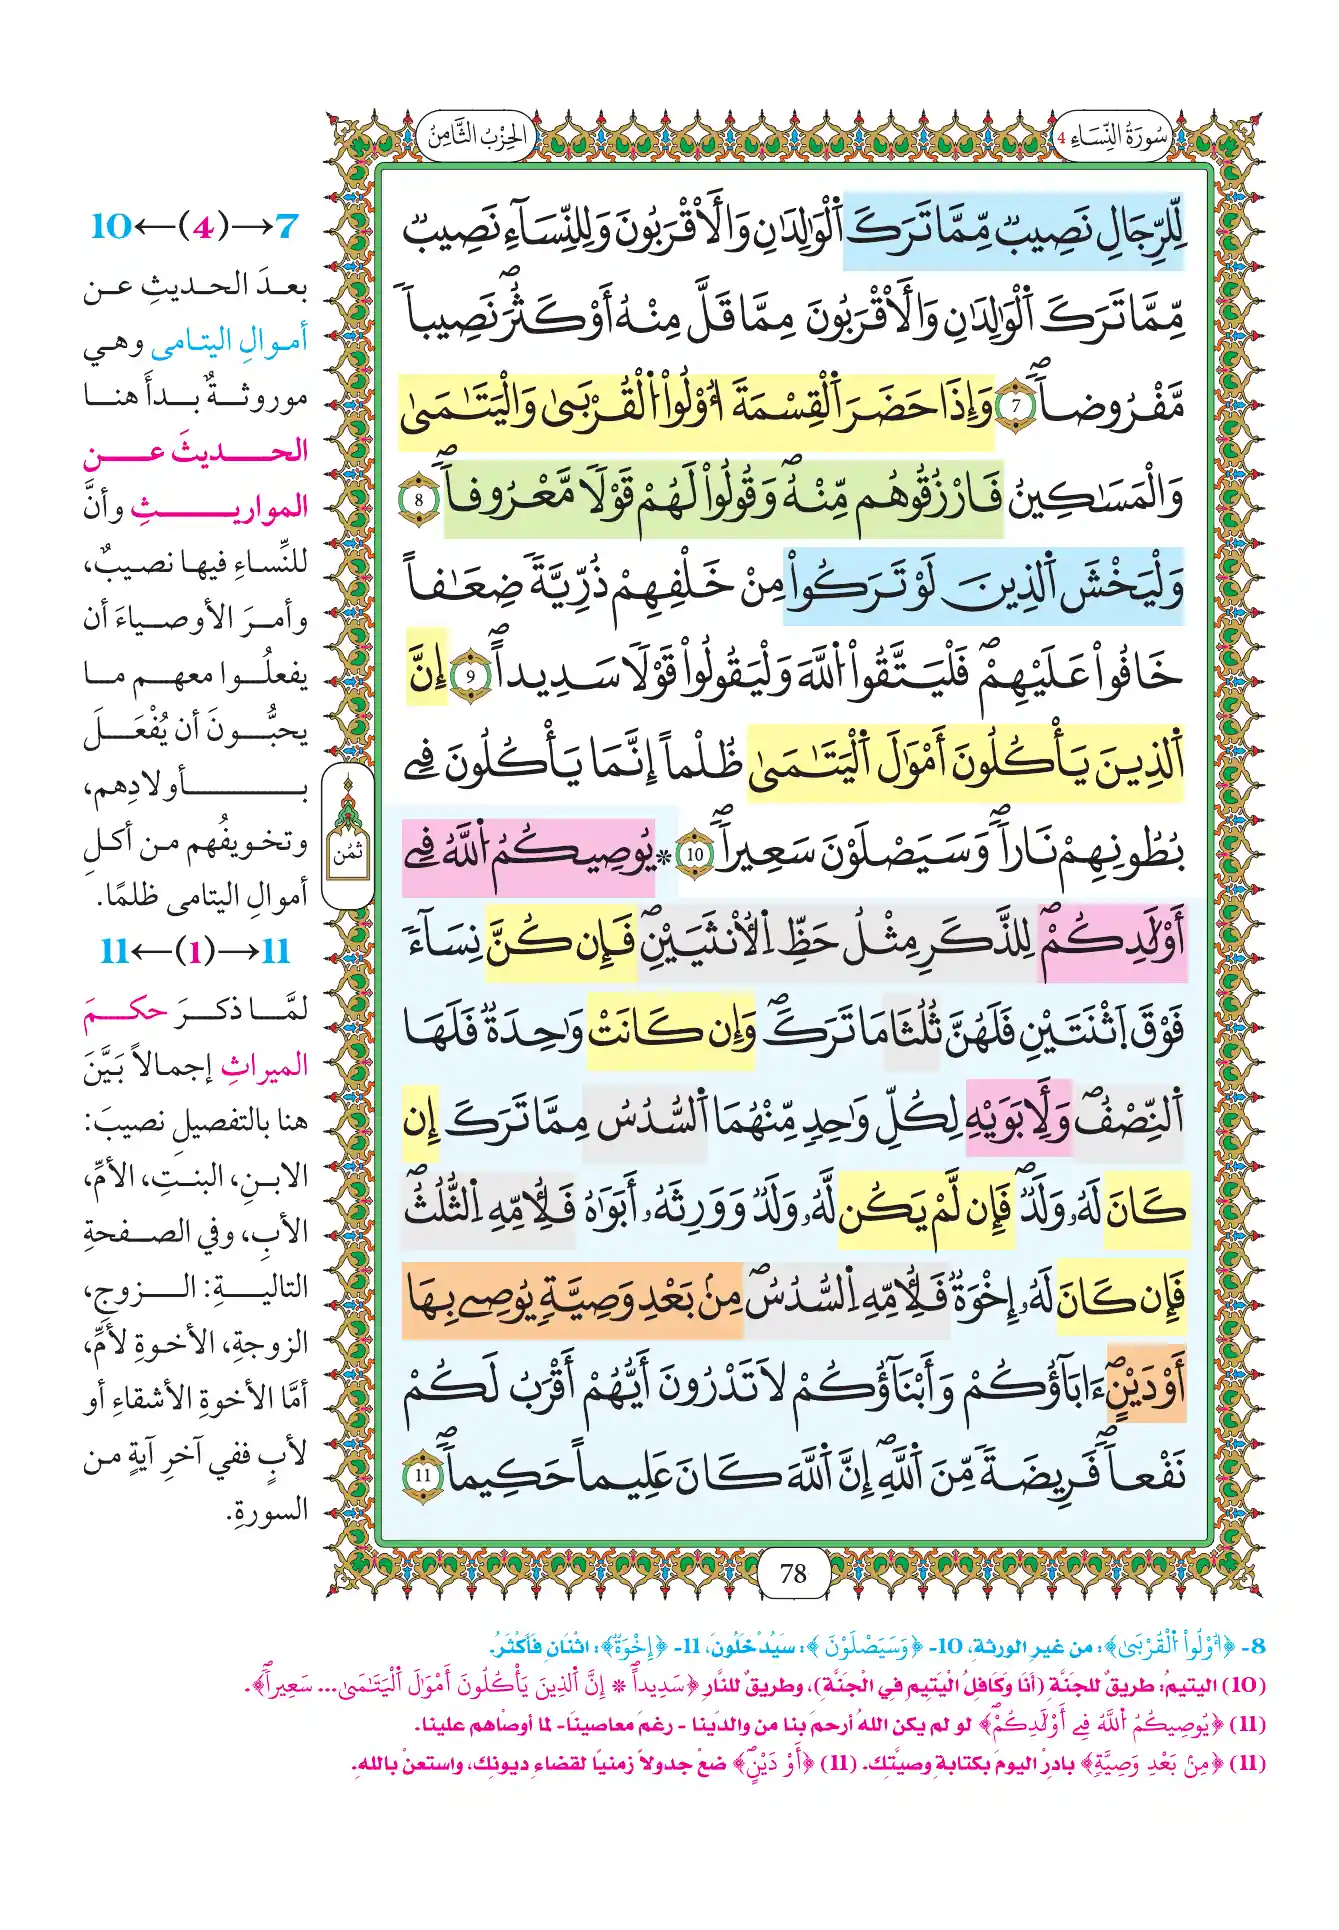 سُورَةُ النِّسَاءِ 4
الحِزْبُ الثَّامِنُ
لِّلرِّجَالِ نَصِيبٌ مِّمَّا تَرَكَ اَ۬لْوَٰلِدَٰنِ وَالَاقْرَبُونَ وَلِلنِّسَآءِ نَصِيبٌ
مِّمَّا تَرَكَ اَ۬لْوَٰلِدَٰنِ وَالَاقْرَبُونَ مِمَّا قَلَّ مِنْهُ أَوْ كَثُرَۖ نَصِيباٗ
مَّفْرُوضاٗۖ 7 وَإِذَا حَضَرَ اَ۬لْقِسْمَةَ أُوْلُواْ اُ۬لْقُرْبَىٰ وَالْيَتَٰمَىٰ
وَالْمَسَٰكِينُ فَارْزُقُوهُم مِّنْهُۖ وَقُولُواْ لَهُمْ قَوْلاٗ مَّعْرُوفاٗۖ 8
وَلْيَخْشَ اَ۬لذِينَ لَوْ تَرَكُواْ مِنْ خَلْفِهِمْ ذُرِّيَّةٗ ضِعَٰفاً
خَافُواْ عَلَيْهِمْۖ فَلْيَتَّقُواْ اُ۬للَّهَ وَلْيَقُولُواْ قَوْلاٗ سَدِيداًۖ 9 إِنَّ
اَ۬لذِينَ يَأْكُلُونَ أَمْوَٰلَ اَ۬لْيَتَٰمَىٰ ظُلْماً إِنَّمَا يَأْكُلُونَ فِے
بُطُونِهِمْ نَاراٗۖ وَسَيَصْلَوْنَ سَعِيراٗۖ 10 * يُوصِيكُمُ اُ۬للَّهُ فِے
أَوْلَٰدِكُمْۖ لِلذَّكَرِ مِثْلُ حَظِّ اِ۬لُانثَيَيْنِۖ فَإِن كُنَّ نِسَآءٗ
فَوْقَ اَ۪ثْنَتَيْنِ فَلَهُنَّ ثُلُثَا مَا تَرَكَۖ وَإِن كَانَتْ وَٰحِدَةٞ فَلَهَا
اَ۬لنِّصْفُۖ وَلِأَبَوَيْهِ لِكُلِّ وَٰحِدٖ مِّنْهُمَا اَ۬لسُّدُسُ مِمَّا تَرَكَ إِن
كَانَ لَهُۥ وَلَدٞۖ فَإِن لَّمْ يَكُن لَّهُۥ وَلَدٞ وَوَرِثَهُۥ أَبَوَٰهُ فَلِأُمِّهِ اِ۬لثُّلُثُۖ
فَإِن كَانَ لَهُۥ إِخْوَةٞ فَلِأُمِّهِ اِ۬لسُّدُسُۖ مِنۢ بَعْدِ وَصِيَّةٖ يُوصِے بِهَا
أَوْ دَيْنٍۖ ءَابَآؤُكُمْ وَأَبْنَآؤُكُمْ لَا تَدْرُونَ أَيُّهُمْ أَقْرَبُ لَكُمْ
نَفْعاٗۖ فَرِيضَةٗ مِّنَ اَ۬للَّهِۖ إِنَّ اَ۬للَّهَ كَانَ عَلِيماً حَكِيماٗۖ 11
ثُمُن
78
7→(4)←10
بعدَ الحديثِ عن
أموالِ اليتامى وهي
موروثةٌ بدأَ هنا
الحديثَ عن
المواريثِ وأنَّ
للنِّساءِ فيها نصيبٌ،
وأمرَ الأوصياءَ أن
يفعلُوا معهم ما
يحبُّونَ أن يُفْعَلَ
بأولادِهم،
وتخويفُهم من أكلِ
أموالِ اليتامى ظلمًا.
11→(1)←11
لمَّا ذكرَ حكمَ
الميراثِ إجمالاً بَيَّنَ
هنا بالتفصيلِ نصيبَ:
الابنِ، البنتِ، الأمِّ،
الأبِ، وفي الصفحةِ
التاليةِ: الزوجِ،
الزوجةِ، الأخوةِ لأمٍّ،
أمَّا الأخوةِ الأشقاءِ أو
لأبٍ ففي آخرِ آيةٍ من
السورةِ.
8- ﴿أُوْلُواْ اُ۬لْقُرْبَىٰ﴾: من غيرِ الورثةِ، 10- ﴿وَسَيَصْلَوْنَ﴾: سَيَدْخَلُونَ، 11- ﴿إِخْوَةٞ﴾: اثْنَانِ فَأَكْثَرُ.
(10) اليتيمُ: طريقٌ للجَنَّةِ (أنَا وَكَافِلُ الْيَتِيمِ فِي الْجَنَّةِ)، وطريقٌ للنَّارِ ﴿سَدِيداًۖ * إِنَّ اَ۬لذِينَ يَأْكُلُونَ أَمْوَٰلَ اَ۬لْيَتَٰمَىٰ... سَعِيراٗۖ﴾.
(11) ﴿يُوصِيكُمُ اُ۬للَّهُ فِے أَوْلَٰدِكُمْۖ﴾ لو لم يكن اللهُ أرحمَ بنا من والدَينا - رغمَ معاصينا- لما أوصَاهم علينا.
(11) ﴿مِنۢ بَعْدِ وَصِيَّةٖ﴾ بادرْ اليومَ بكتابةِ وصيَّتِك. (11) ﴿أَوْ دَيْنٍۖ﴾ ضعْ جدولاً زمنيًا لقضاءِ ديونِك، واستعنْ باللهِ.